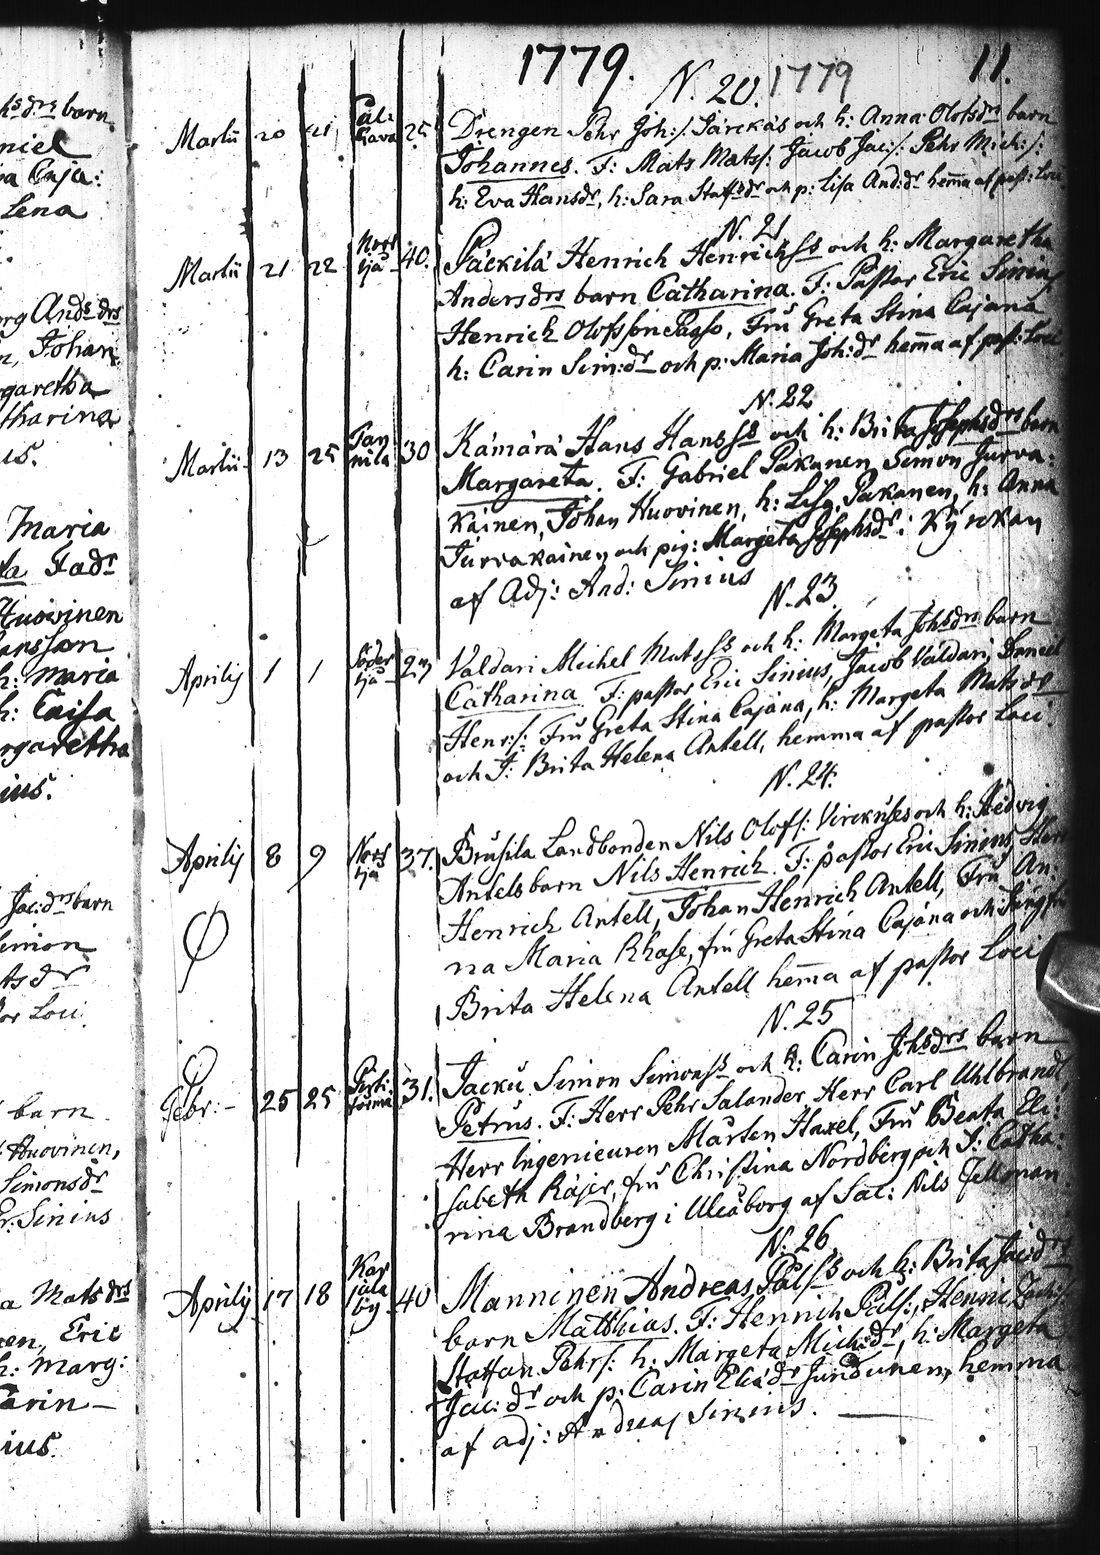 hs drs barn
niel
a Caja:
Lena
org Ands drs
n, Johan
rgaretha
tharina
us.
Maria
la Jadr
Huovinen
ansson
h: Maria
h: Caisa
rgaretha
ius.
Jac:drs barn
Simon
ts dr
or Loci.
barn
Huovinen,
Simonsdr
Er. Sinius
a Mats drs
en, Eric
h: Marg:
Carin —
ius.
1779. 1779 11.
N. 20.
Martii 20 21 Pal: tjava 25 Drengen Pehr Joh:s: Särckäs och h: Anna Olofsdrs barn
Johannes. F: Mats Mats: Jacob Jac:s: Pehr Mich:s:
h: Eva Hansdr, h: Sara Stafsdr och p: Lisa And:dr hemma af past: Loci
N. 21
Martii 21 22 Norr tjä 40. Päckilä Henrich Henrichss och h: Margaretha
Andersdrs barn Catharina. F: Pastor Eric Sinius
Henrich Olofsson Passo, Fru Greta Stina Cajana
h: Carin Sim:dr och p: Maria Joh:dr hemma af past: Loci
N. 22
Martii 13 25 Tan nila 30 Kämärä Hans Hanss och h: Brita Josephsdrs barn
Margareta. F: Gabriel Pakanen, Simon Jurva:
kainen, Johan Huovinen, h: Lisa Pakanen, h: Anna
Jurvakainen och pig: Margeta Josephsdr i Kyrckan
af Adj: And: Sinius
N. 23
Aprilij 1 1 Söder tjä 27 Valdari Michel Matsss och h: Margeta Johsdrs barn
Catharina F: pastor Eric Sinius, Jacob Valdari, Daniel
Henr:s: Fru Greta Stina Cajana, h: Margeta Matsdr
och J: Brita Helena Antell, hemma af pastor Loci
N. 24.
Aprilij 8 9 Norr tjä 37. Brusila Landbonden Nils Olofs: Virckuses och h: Hedvig
Antels barn Nils Henrich. F: pastor Eric Sinius, Herr
Henrich Antell, Johan Henrich Antell, Fru An:
na Maria Rhase, fru Greta Stina Cajana och Jungfru
Brita Helena Antell hemma af pastor Loci
N. 25
Febr: — 25 25 31. Jacku Simon Simonss och h: Carin Johsdrs barn
Petrus. F: Herr Pehr Salander, Herr Carl Uhlbrandt,
Herr Ingenieuren Mårten Haxel, Fru Beata Eli:
sabeth Röjer, fru Christina Nordberg och J: Catha:
rina Brandberg i Uleåborg af Sac: Nils Jellman
N. 26
Aprilij 17 18 Kar jala by 40 Manninen Andreas Pålss och h: Brita Jac:drs
barn Matthias. F: Henrich Påls:, Henric Zach:s:
Staffan Pehrs: h: Margeta Michsdr, h: Margeta
Jac:dr och p: Carin Eliædr Junduinen, hemma
af adj: Andreas Sinius. —